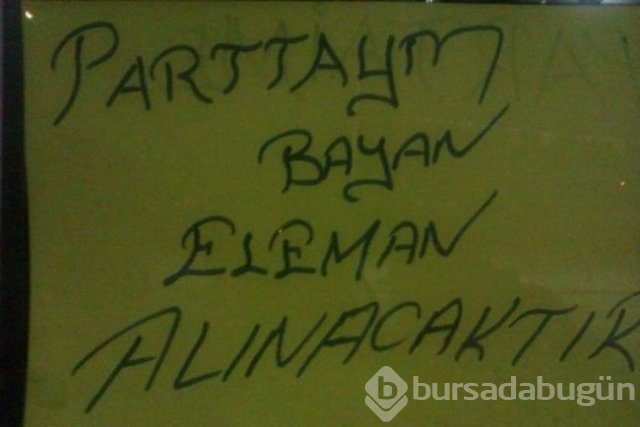 PARTTAYM
BAYAN
ELEMAN
ALINACAKTIR
b bursadabugün